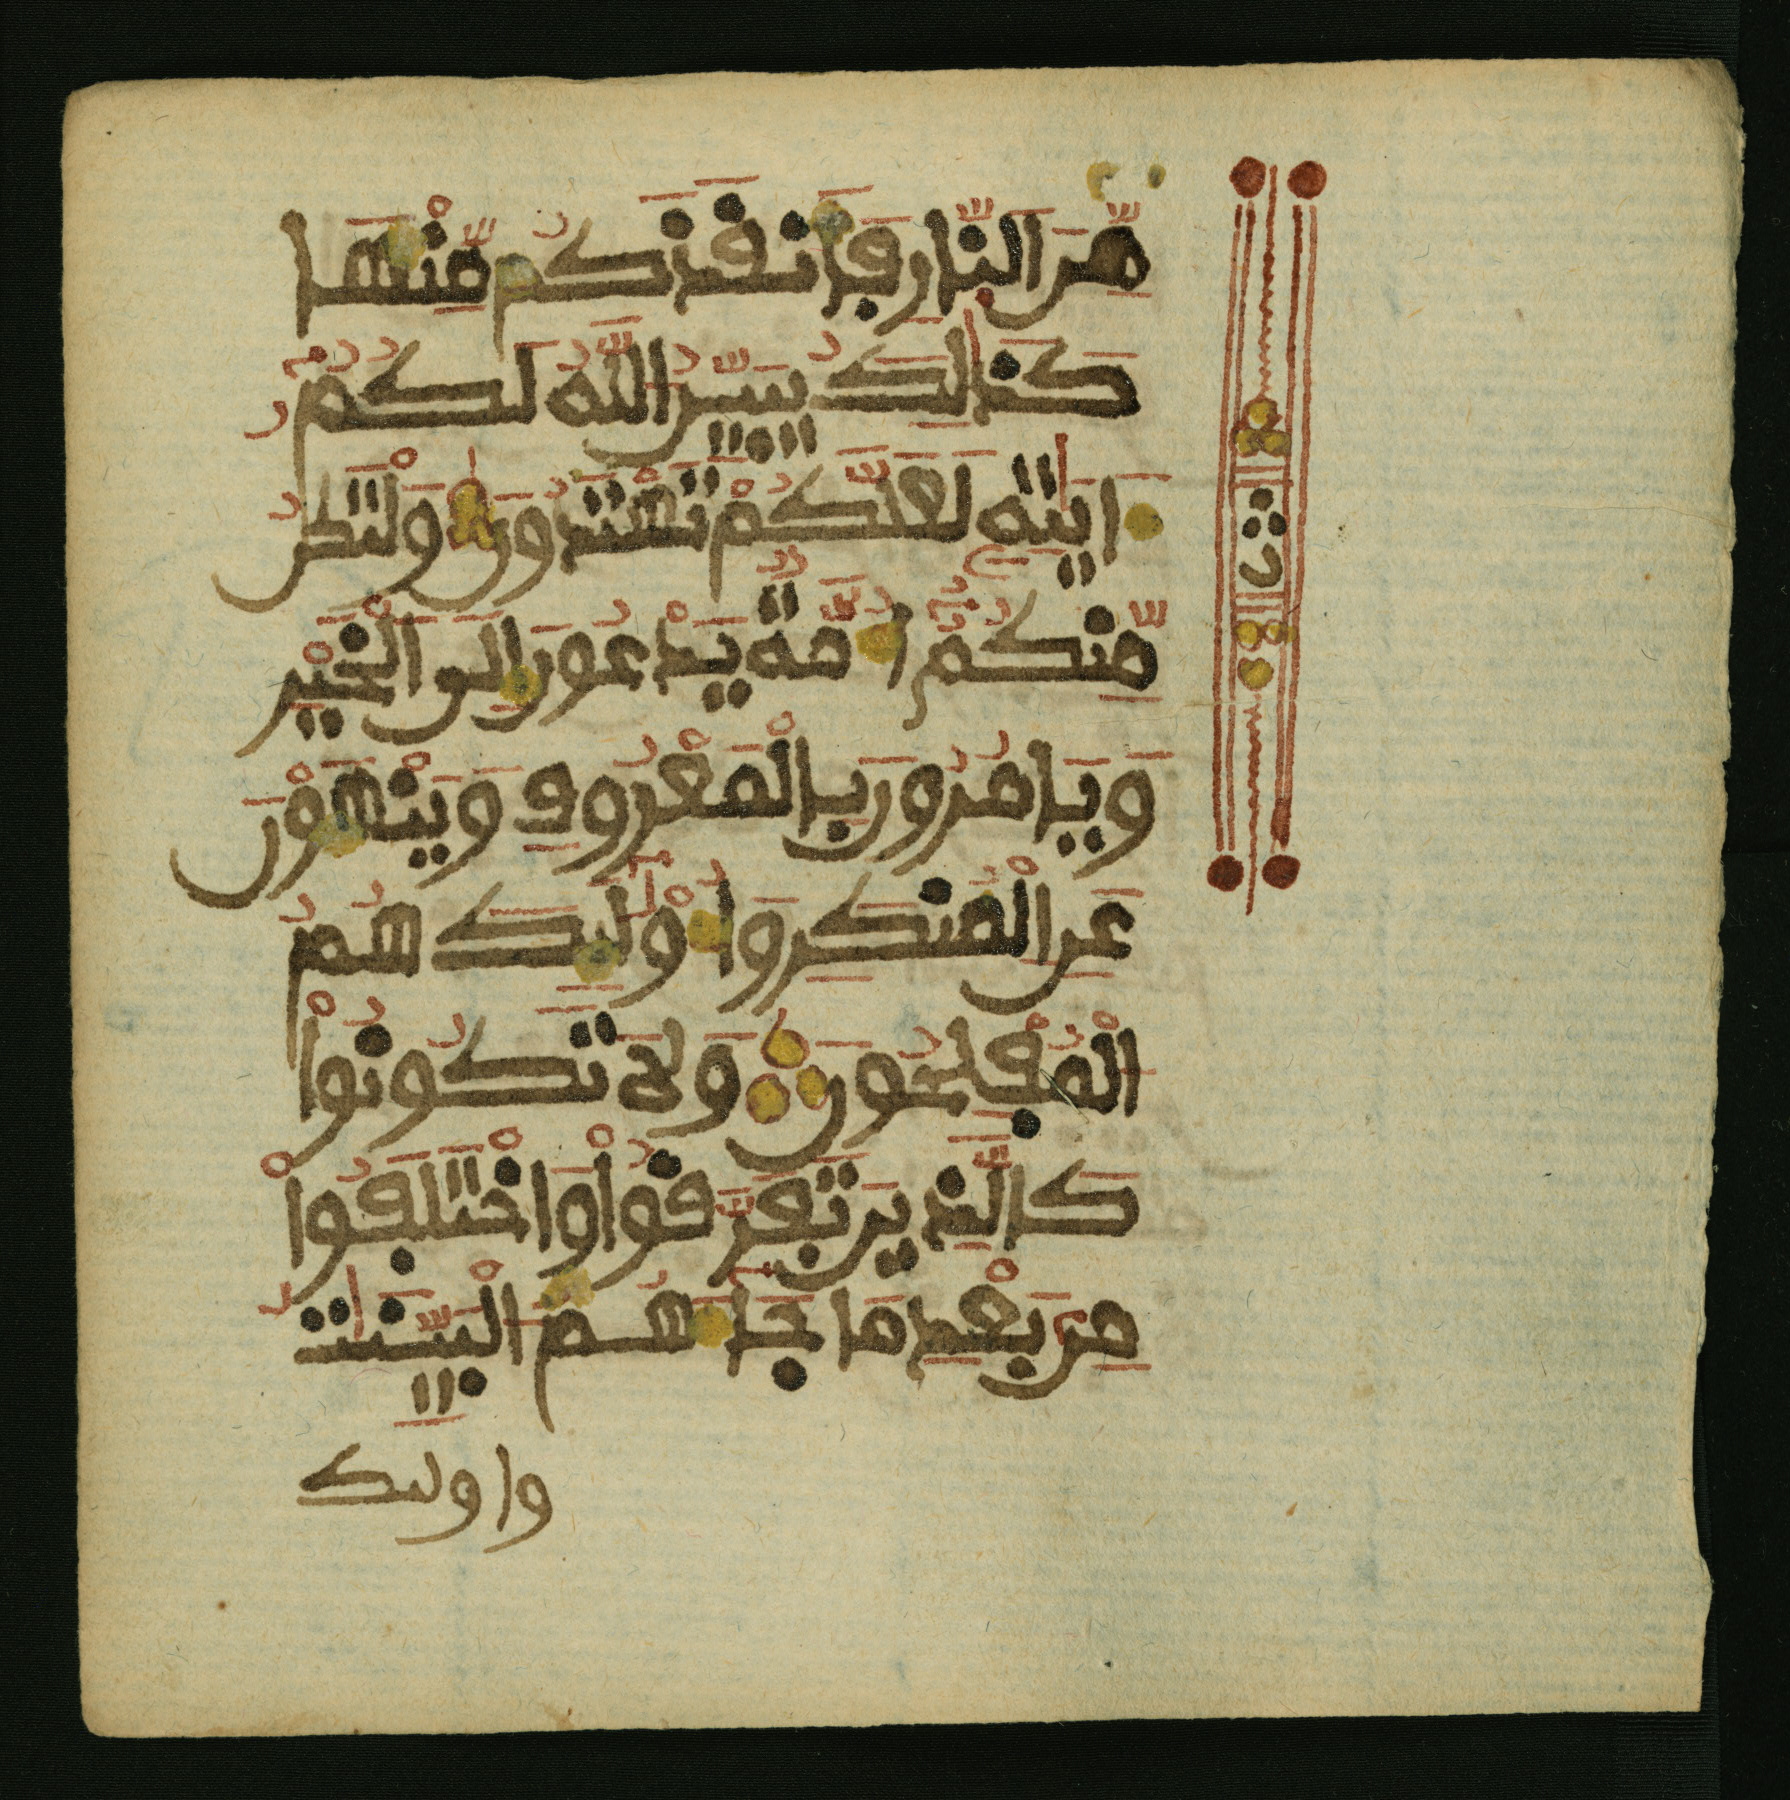 مِّنَ ٱلنّ۪ارِ فَأَنقَذَكُم مِّنْهَا
كَذَٰلِكَ يُبَيِّنُ ٱللَّهُ لَكُمُۥٓ
ءَايَٰتِهِۦ لَعَلَّكُمْ تَهْتَدُونَ وَلْتَكُن
مِّنكُمُۥٓ أُمَّةٌ يَدْعُونَ إِلَى ٱلْخَيْرِ
وَيَامُرُونَ بِالْمَعْرُوفِ وَيَنْهَوْنَ
عَنِ ٱلْمُنكَرِ وَأُوْلَٰٓئِكَ هُمُ
ٱلْمُفْلِحُونَ وَلَا تَكُونُواْ
كَٱلَّذِينَ تَفَرَّقُواْ وَٱخْتَلَفُواْ
مِنۢ بَعْدِ مَا جَآءَهُمُ ٱلْبَيِّنَٰتُ
واوليك